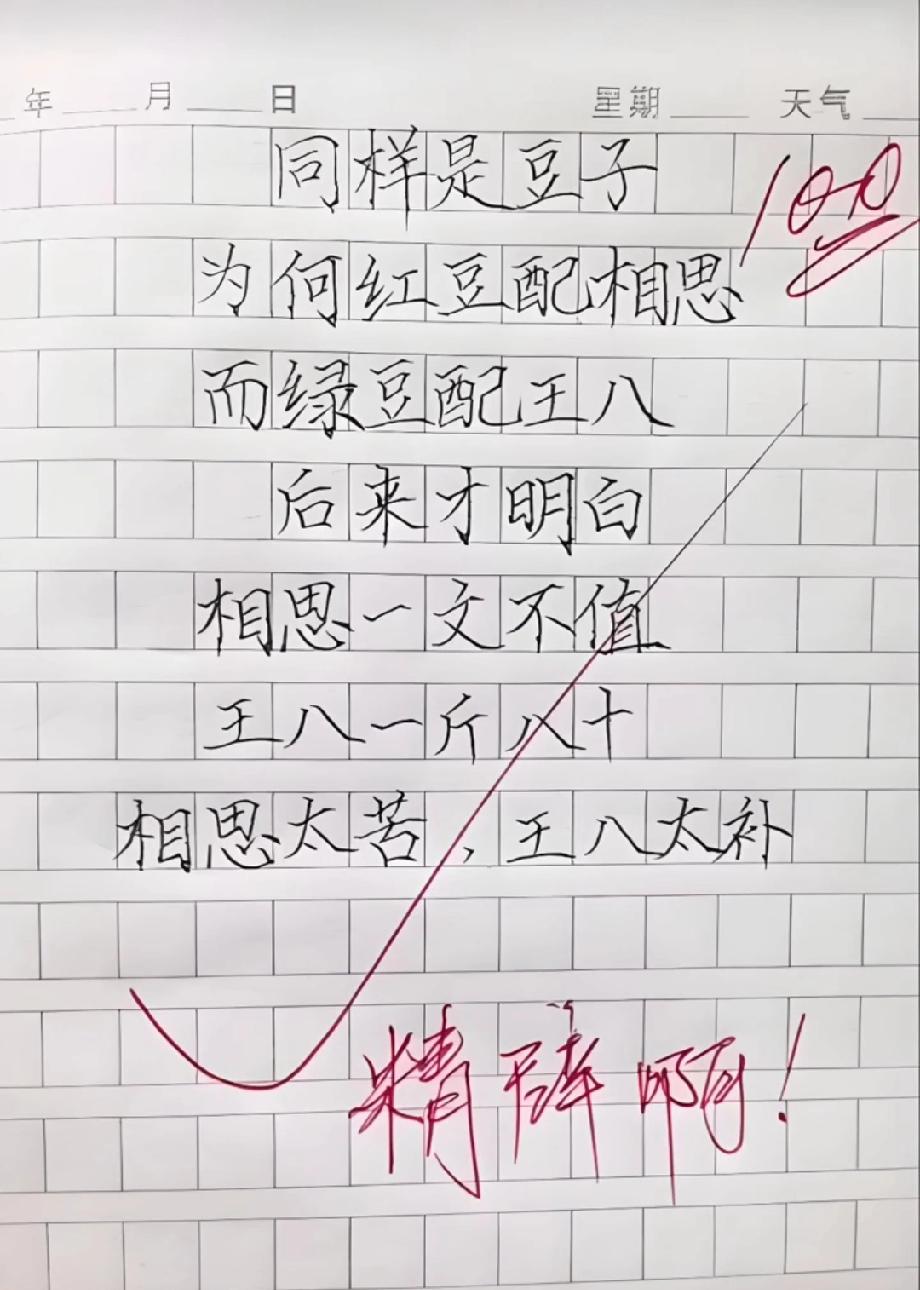 年 月 日 星期 天气
同样是豆子
100
为何红豆配相思
而绿豆配王八
后来才明白
相思一文不值
王八一斤八十
相思太苦，王八太补
精辟啊！